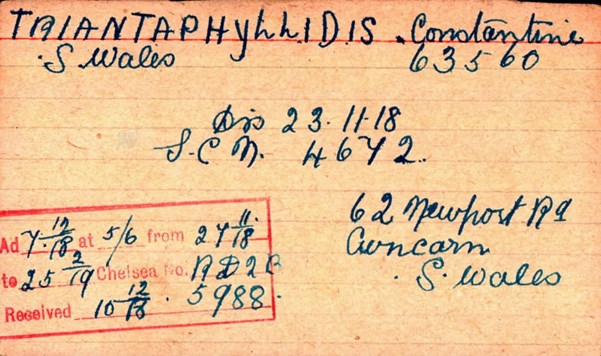 TRIANTAPHYLLIDIS. Constantine
S. Wales 63560
Dis 23.11.18
S.C.N. 4672.
62 Newport Rd
Cwncarn
S. Wales
Ad 7.12/18 at 5/6 from 24 11/18
to 25 2/19 Chelsea No. RD2C
Received 10 12/18. 5988.